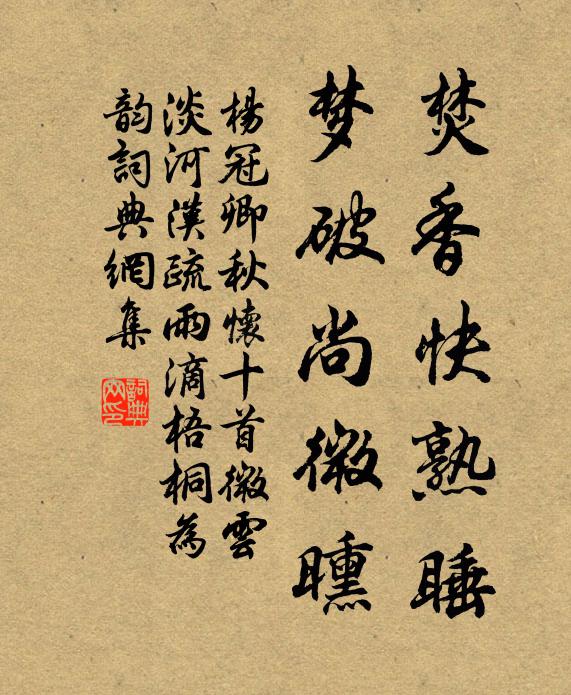 焚香快熟睡
梦破尚微曛
楊冠卿秋懷十首微雲
淡河漢疏雨滴梧桐為
韵詞典網集
詞典
网印